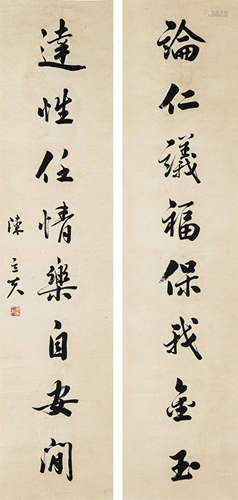 論仁議福保我金玉
達性任情樂自安閒
陳立夫